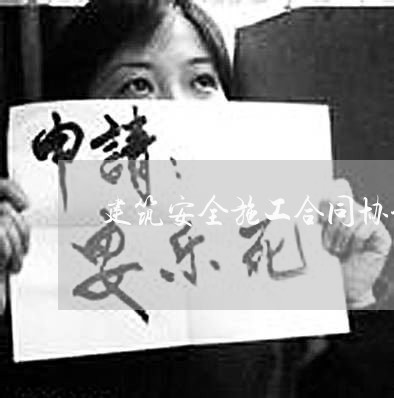 申請：
建筑安全施工合同协
安乐死